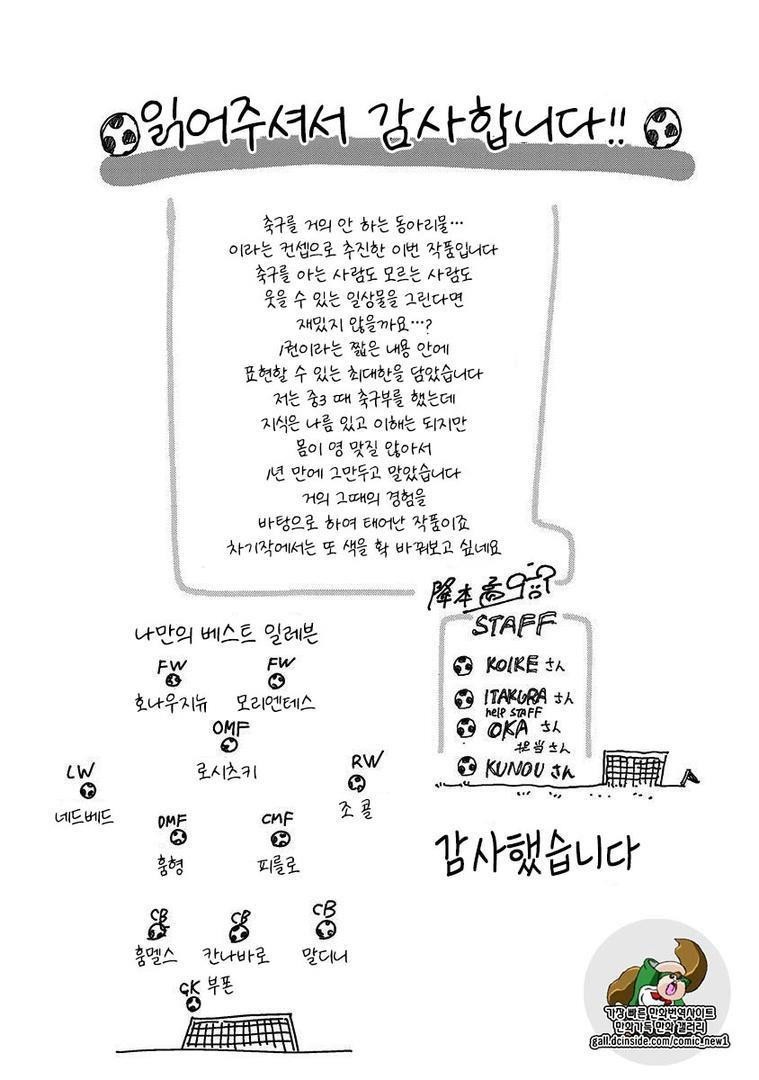 읽어주셔서 감사합니다!!
축구를 거의 안 하는 동아리물…
이라는 컨셉으로 추진한 이번 작품입니다
축구를 아는 사람도 모르는 사람도
웃을 수 있는 일상물을 그린다면
재밌지 않을까요…?
1권이라는 짧은 내용 안에
표현할 수 있는 최대한을 담았습니다
저는 중3 때 축구부를 했는데
지식은 나름 있고 이해는 되지만
몸이 영 맞질 않아서
1년 만에 그만두고 말았습니다
거의 그때의 경험을
바탕으로 하여 태어난 작품이죠
차기작에서는 또 색을 확 바꿔보고 싶네요
降本高
STAFF
KOIKE さん
ITAKURA さん
help STAFF
OKA さん
担当さん
KUNOU さん
감사했습니다
나만의 베스트 일레븐
FW FW
호나우지뉴 모리엔테스
OMF
로시츠키
LW RW
네드베드 조 콜
DMF CMF
훔형 피를로
CB CB CB
훔멜스 칸나바로 말디니
GK 부폰
가장 빠른 만화번역사이트
만화가득 만화 갤러리
gall.dcinside.com/comic_new1